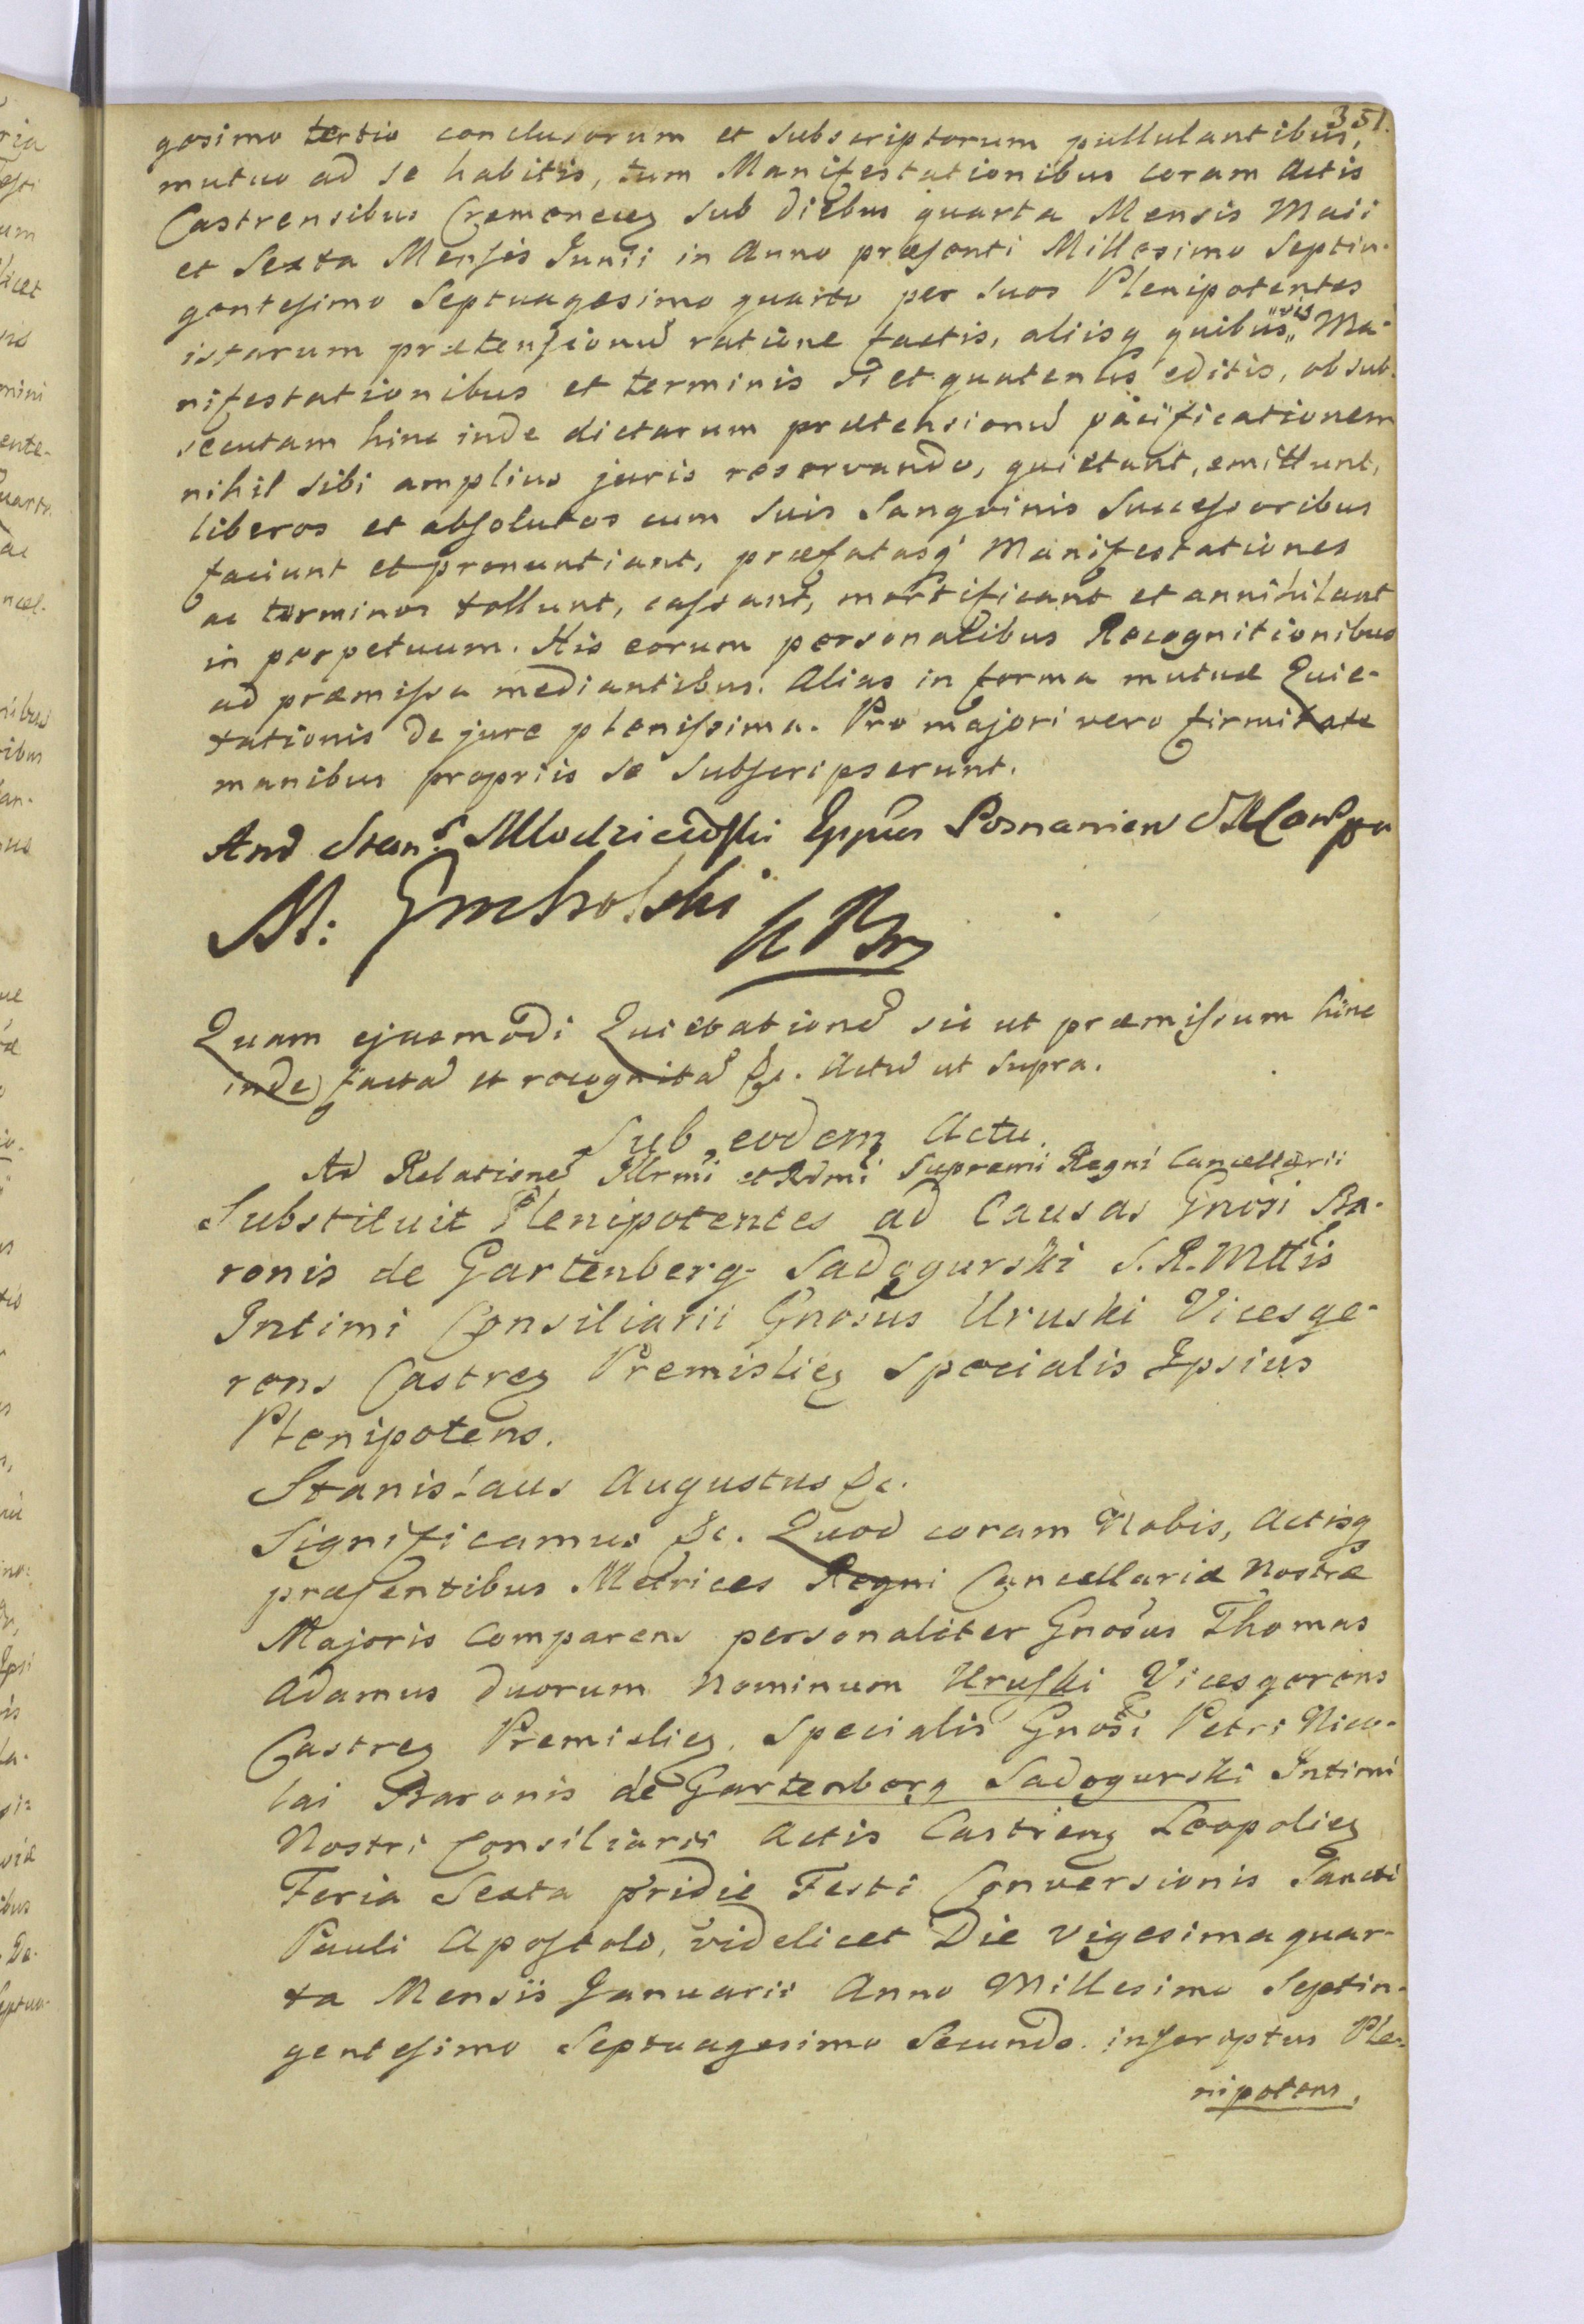 351.
gesimo tertio conclusorum et subscriptorum pullulantibus,
mutuo ad se habitis, tum Manifestationibus coram Actis
Castrensibus Cremeneceñ sub diebus quarta Mensis Maii
et Sexta Mensis Junii in Anno præsenti Millesimo Septin-
gentesimo Septuagesimo quarto per suos Plenipotentes
istarum prætensionū ratione factis, aliisq quibus„vis„ Ma-
nifestationibus et terminis si et quatenus editis, ob sub-
secutam hinc inde dictarum prætensionū pacificationem
nihil sibi amplius juris reservando, quietant, emittunt,
liberos et absolutos cum suis Sangvinis Successoribus
faciunt et pronuntiant, præfatasq Manifestationes
ac terminos tollunt, cassant, mortificant et annihilant
in perpetuum. His eorum personalibus Recognitionibus
ad præmissa mediantibus. Alias in forma mutuæ Quie-
tationis de jure plenissima. Pro majori vero firmitate
manibus propriis se subscripserunt.
And Stan. Młodzieiowski Eppus Posnanien
M: Grocholski
Quam ejusmodi Quietationē sic ut præmissum hinc
inde factā et recognitā &c. Actū ut supra.
Sub eodem Actu.
Ad Relationē Illrmi et Rdmi Supremi Regni Cancellarii
Substituit Plenipotentes ad Causas Gnosi Ba-
ronis de Gartenberg Sadogurski S. R. Mttis
Intimi Consiliarii Gnosus Uruski Vicesge-
rens Castreñ Premislieñ Specialis Ipsius
Plenipotens.
Stanislaus Augustus &c.
Significamus &c. Quod coram Nobis, Actisq
præsentibus Metrices Regni Cancellariæ Nostræ
Majoris Comparens personaliter Gnosus Thomas
Adamus duorum Nominum Uruski Vicesgerens
Castreñ Premislieñ, Specialis Gnosi Petri Nico-
lai Baronis de Gartenberg Sadogurski Intimi
Nostri Consiliarii Actis Castrenñ Leopolieñ
Feria Sexta pridie Festi Conversionis Sancti
Pauli Apostoli, videlicet Die vigesima quar-
ta Mensis Januarii Anno Millesimo Septin-
gentesimo Septuagesimo Secundo inscriptus Ple-
nipotens,